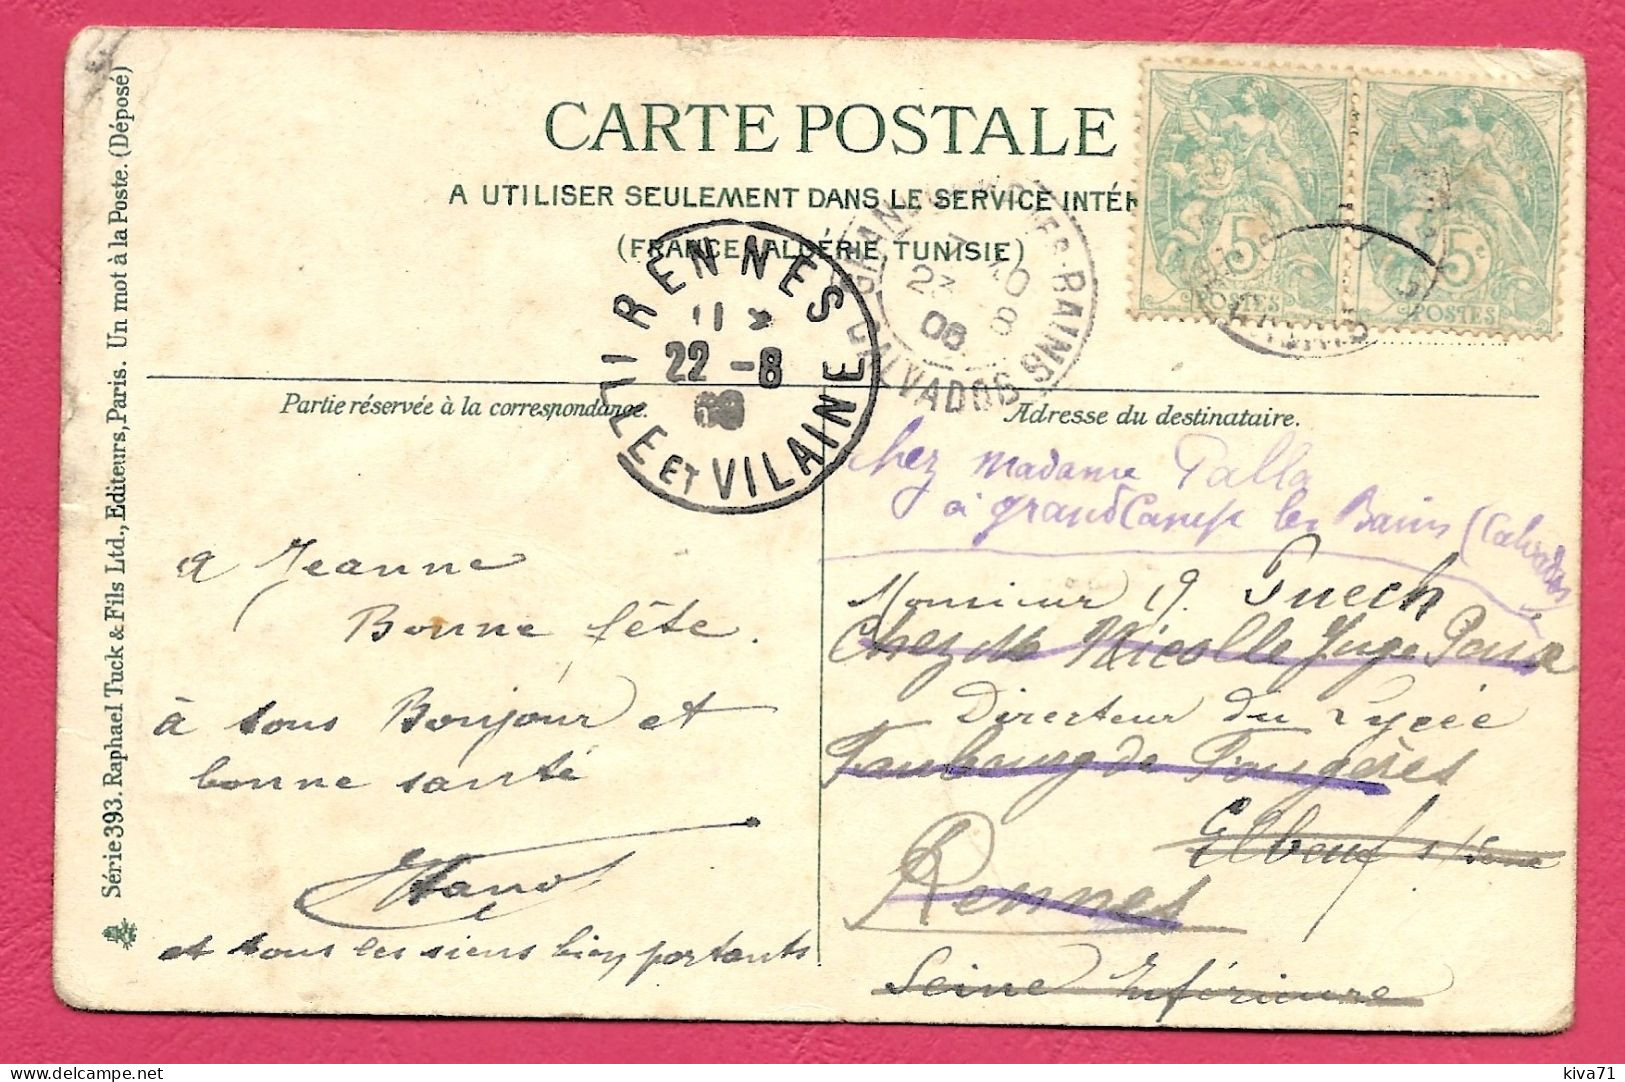 CARTE POSTALE
A UTILISER SEULEMENT DANS LE SERVICE INTÉR
(FRANCE, ALGÉRIE, TUNISIE)
Série 393. Raphael Tuck & Fils Ltd., Editeurs, Paris. Un mot à la Poste. (Déposé)
5c
POSTES
5c
POSTES
RENNES
22 - 8
ILLE ET VILAINE
LES-BAINS
08
CALVADOS
Partie réservée à la correspondance.
Adresse du destinataire.
a Jeanne
Bonne fête.
à tous Bonjour et
bonne santé
et tous les siens bien portants
chez madame Palla
à grandCamp les Bains (Calvados
Monsieur Puech
Chez Mr Nicolle Juge Paix
Directeur du Lycée
Faubourg de Fougères
Elbeuf s/Seine
Rennes
Seine Inférieure
kiva71